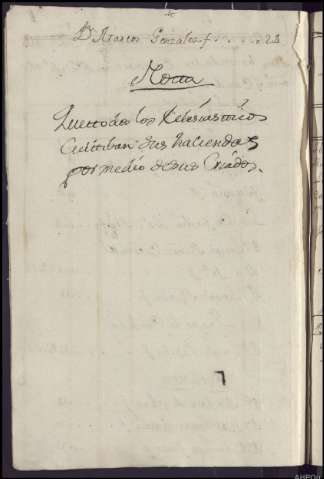 Dⁿ Marcos Gonzales f . . . . . 24
Nota
Que todos los Eclesiasticos
Cultiban sus haciendas
por medio de sus Criados.
AHPOU